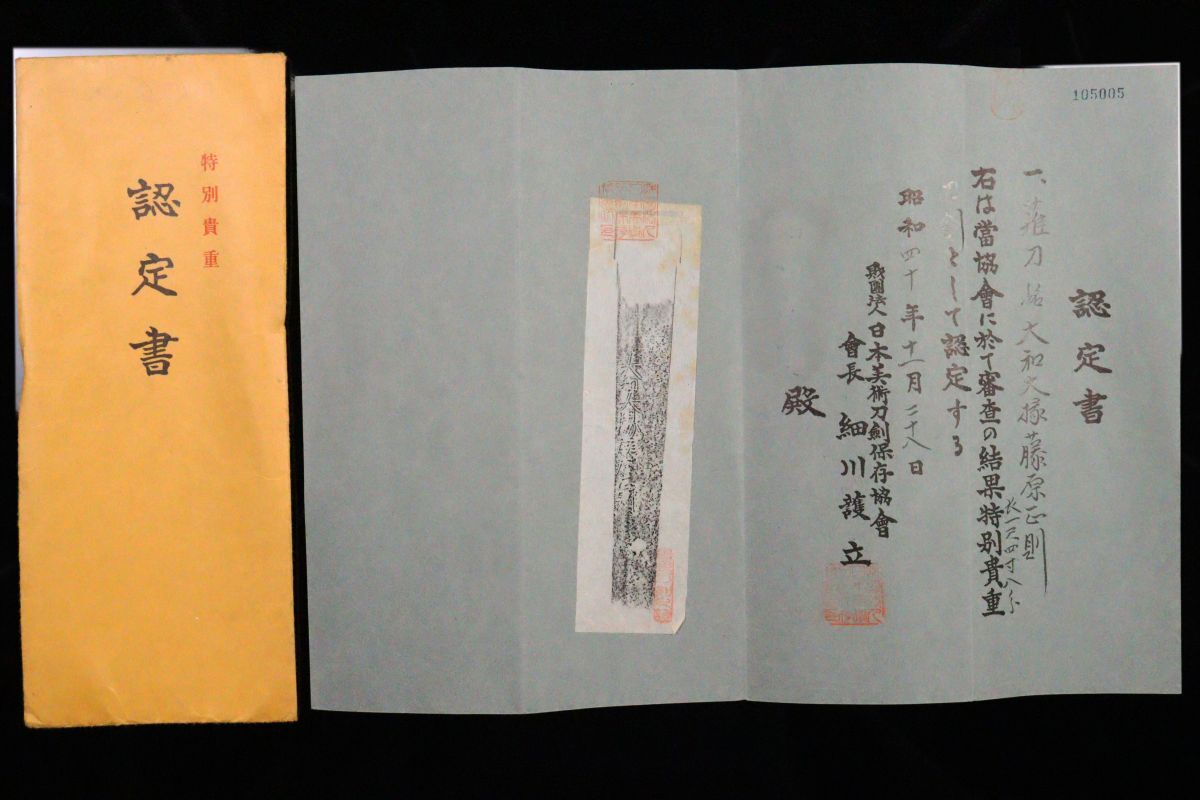 特別貴重
認定書
105005
認定書
一、薙刀 銘 大和大掾藤原正則
長一尺四寸八分
右は當協會に於て審査の結果特別貴重
刀剣として認定する
昭和四十年十一月二十八日
財團法人日本美術刀劍保存協會
會長 細川護立
殿